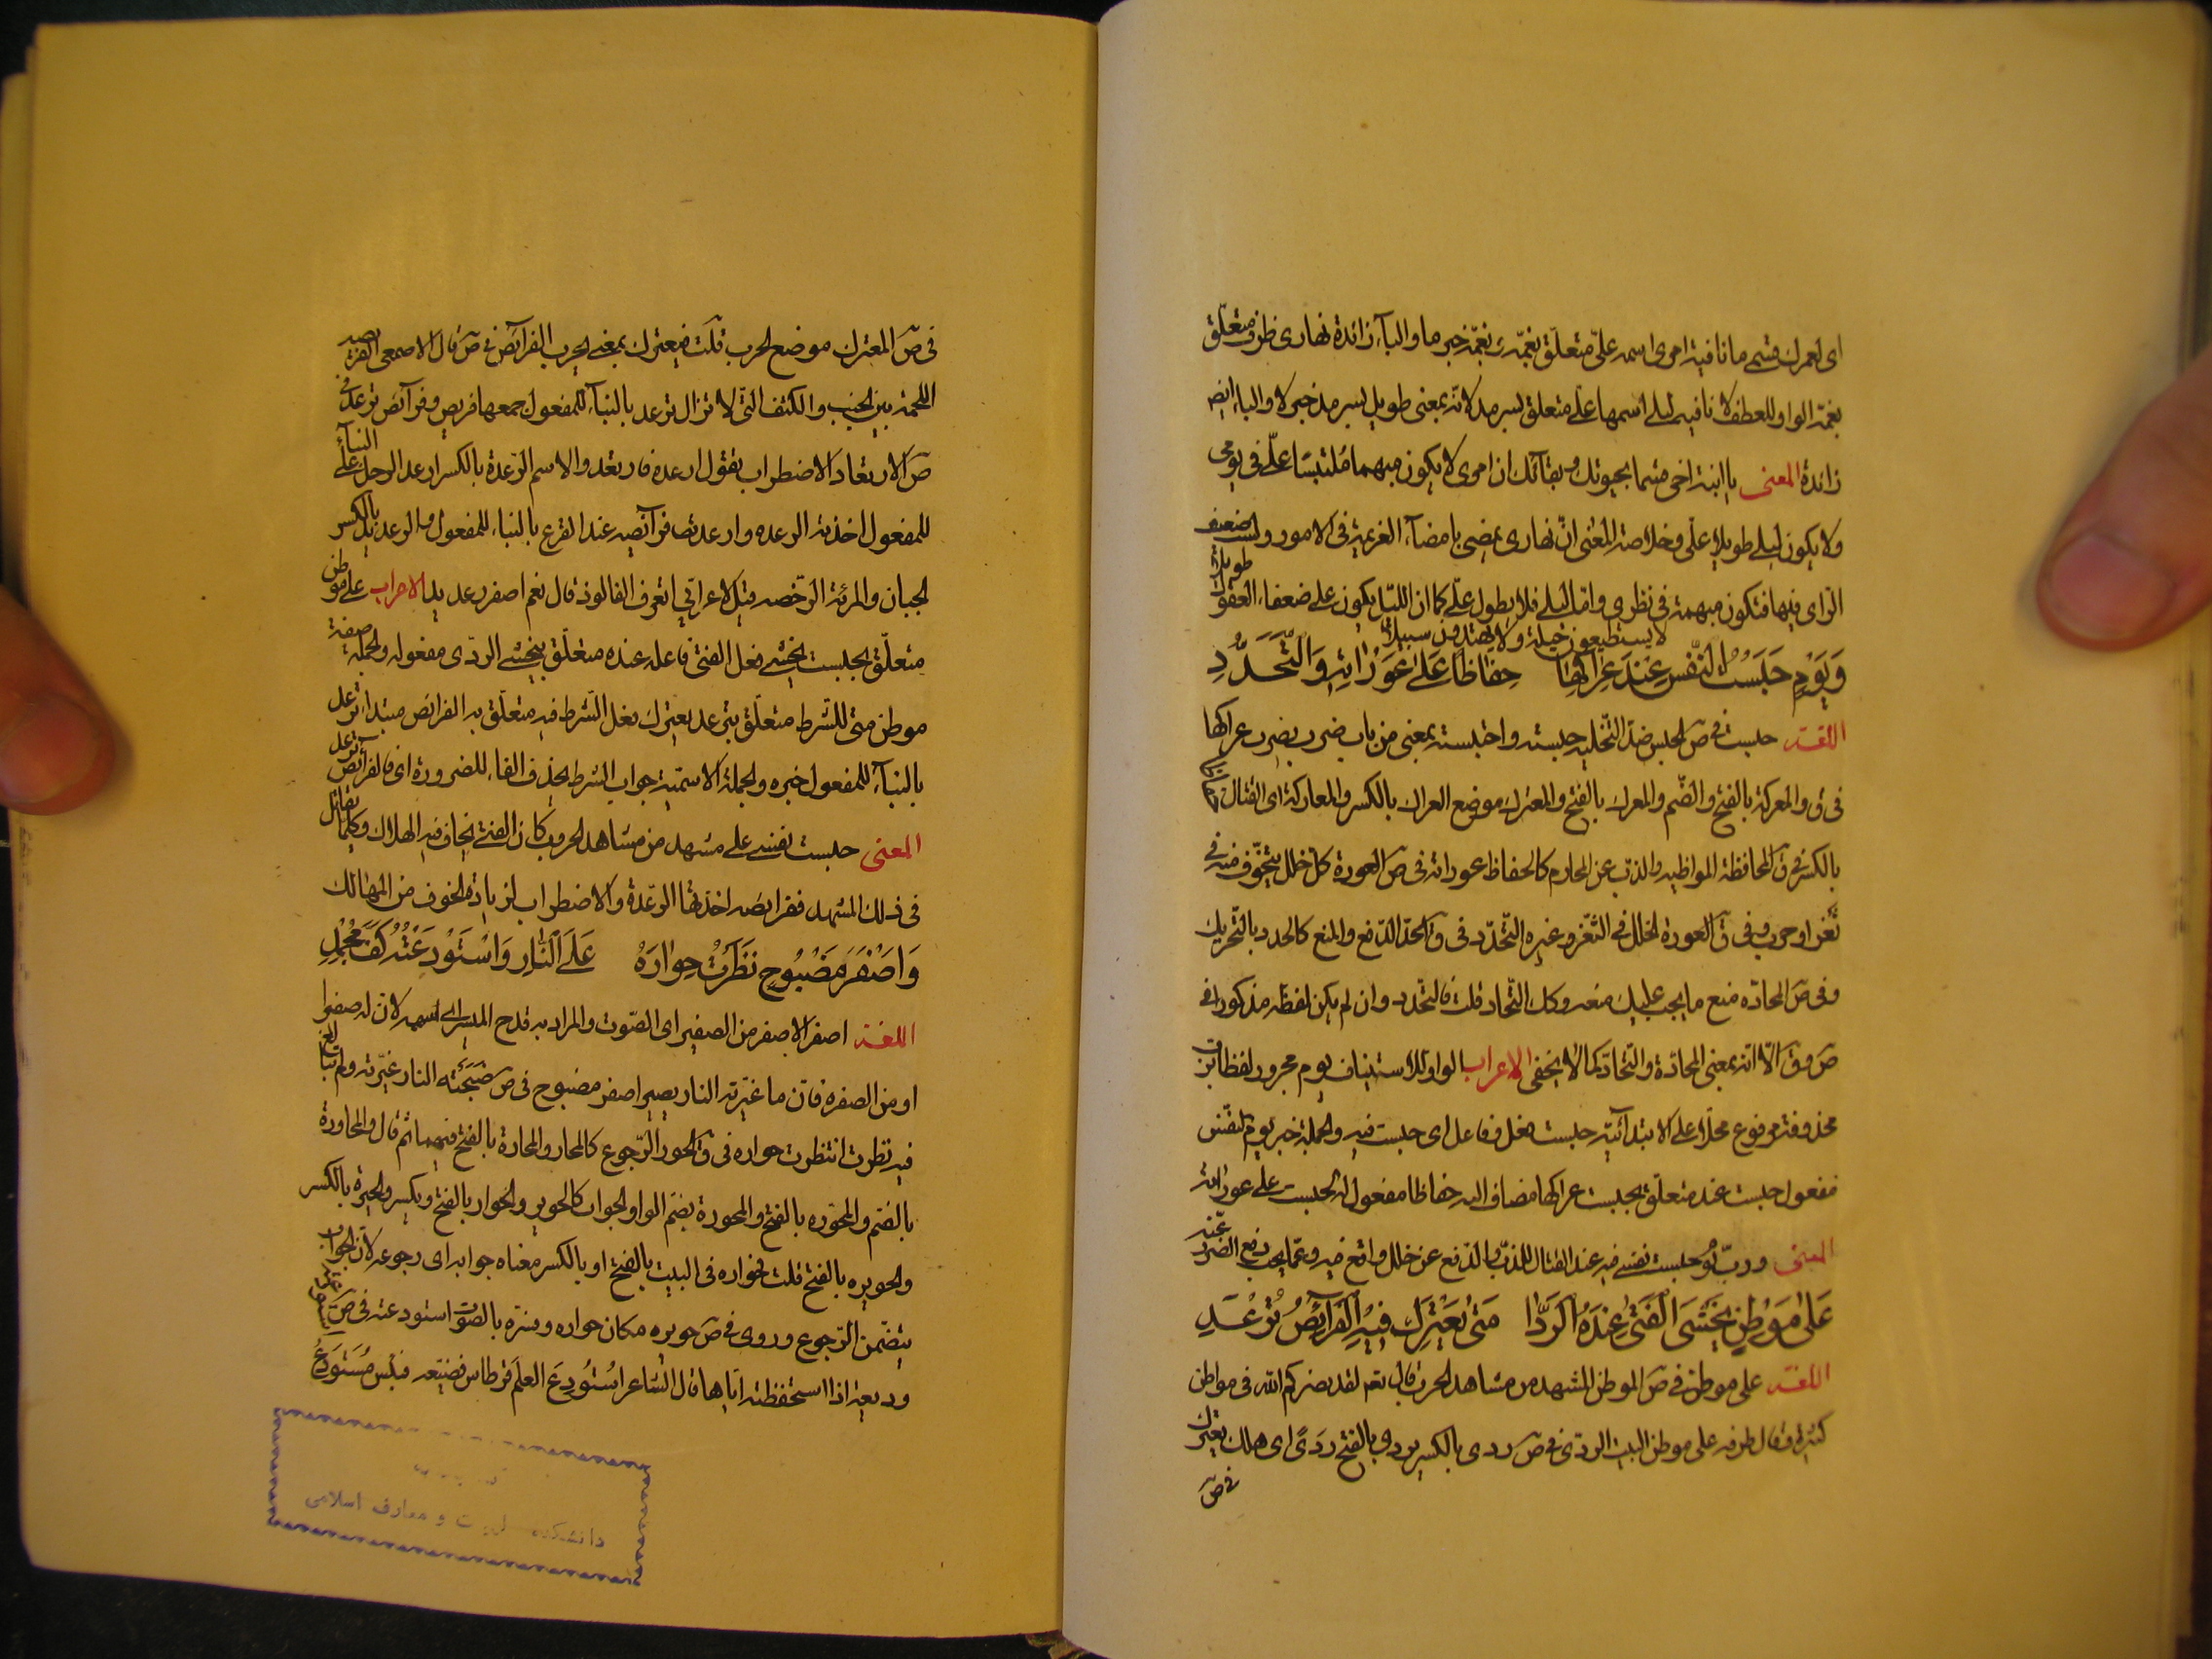 اى لعمرك قسمى ما نافية امرى اسمه علىّ متعلّق بغمّة بغمّة خبر ما والباء زائدة نهارى ظرف متعلّق
بغمّة الواو للعطف لا نافية ليلى اسمها علىّ متعلق بسرمد لانّه بمعنى طويل بسرمد خبر لا والباء ايضا
زائدة المعنى يا ابنة اخى قسما بحيوتك وبقائك ان امرى لا يكون مبهما ملتبسا علىّ فى يومى
ولا يكون ليلى طويلا علىّ وخلاصة المعنى انّ نهارى يمضى بامضاء العزيمة فى الامور ولست ضعيف
الراى فيها فتكون مبهمة فى نظرى وامّا ليلى فلا يطول علىّ كما ان الليل يكون على ضعفاء العقول طويلا
لا يستطيعون حيلة ولا يهتدون سبيلا
وَيَوْمٍ حَبَسْتُ النَّفْسَ عِنْدَ عِرَاكِهَا حِفَاظًا عَلَى عَوْرَاتِهِ وَالتَّحَدُّدِ
اللغة حبست فى ص الحبس ضدّ التّخلية حبسته واحتبسته بمعنى من باب ضرب يضرب عراكها
فى ق والمعركة بالفتح والضّم والمعرك بالفتح والمعترك موضع العراك بالكسر والمعاركة اى القتال
بالكسر فى ق المحافظة المواظبة والذّب عن المحارم كالحفاظ عوراته فى ص العورة كل خلل يتخوّف منه فى
ثغر او حرب وفى ق العورة الخلل فى الثّغر وغيره التّحدّد فى ق الحدّ الدّفع والمنع كالحدد بالتّحريك
وفى ص المحادّه منع ما يجب عليك منعه وكك التّحاد قلت فالتّحدد وان لم يكن لفظه مذكورا فى
ص وق الّا انّه بمعنى المحادّة والتّحادّ كما لا يخفى الاعراب الواو للاستيناف يوم مجرور لفظا بربّ
محذوفة مرفوع محلّا على الابتدائيّة حبست فعل وفاعل اى حبست فيه والجملة خبر يوم النّفس
مفعول حبست عند متعلّق بحبست عراكها مضاف اليه حفاظا مفعول له لحبست على عوراته
المعنى وربّ يوم حبست نفسى فيه عند القتال للذّب والدّفع عن خلل واقع فيه وعمّا يجب دفع الضرر عنه
عَلَى مَوْطِنٍ يَخْشَى الْفَتَى عِنْدَهُ الرَّدَا مَتَى يَعْتَرِكْ فِيهِ الْفَرَائِصُ تُرْعَدِ
اللغة على موطن فى ص الموطن المشهد من مشاهد الحرب قال تعم لقد نصركم الله فى مواطن
كثيرة وقال طرفه على موطن البيت الردى فى ص ردى بالكسر يردى بالفتح رَدًى اى هلك يعترك
فى ص
فى ص المعترك موضع الحرب قلت فيعترك بمعنى يحرب الفرائص فى ص قال الاصمعى الفريصة
اللحمة بين الجنب والكتف التى لا تزال ترعد بالبناء للمفعول جمعها فريص وفرائص ترعد فى
ص الارتعاد الاضطراب يقول ارعده فارتعد والاسم الرّعدة بالكسر ارعد الرجل على البناء
للمفعول اخذته الرعده وارعدت فرائصه عند الفزع بالبناء للمفعول والرعديد بالكسر
الجبان والمرئة الرّخصه قيل لاعرابى اتعرف الفالوذ قال نعم اصفر رعديد الاعراب على موطن
متعلّق بحبست يخشى فعل الفتى فاعله عنده متعلّق بيخشى الردى مفعوله والجملة صفة
موطن متى للشرط متعلّق بترعد يعترك فعل الشّرط فيه متعلّق به الفرائص مبتدا ترعد
بالبناء للمفعول خبره والجملة الاسميّة جواب الشرط بحذف الفاء للضرورة اى فالفرائص ترعد
المعنى حبست نفسى على مشهد من مشاهد الحروب كان الفتى يخاف فيه الهلاك وكلّما يقاتل
فى ذلك المشهد ففرائصه اخذتها الرعّدة والاضطراب لزيادة الخوف من المهالك
وَاَصْفَرَ مَضْبُوحٍ نَظَرْتُ حِوَارَهُ عَلَى النَّارِ وَاسْتَوْدَعْتُهُ كَفَّ مُجْمِدِ
اللغة اصفر الاصفر من الصفير اى الصّوت والمراد به قدح الميسر لانّ له صفرا
او من الصفره فانّ ما غيّرته النار يصير اصفر مضبوح فى ص ضَبَحَتْه النار غيّرته ولم تبالغ
فيه نظرت انتظرت حواره فى ق الحور الرّجوع كالمحار والمحارة بالفتح فيهما ثم قال والمحاورة
بالضّم والمحوره بالفتح والمحورة بضمّ الواو الجواب كالحوير والحوار بالفتح ويكسر والحيرة بالكسر
والحويره بالفتح قلت فحواره فى البيت بالفتح او بالكسر معناه جوابه اى رجوعه لانّ الجواب
يتضّمن الرّجوع وروى فى ص حويره مكان حواره وفسّره بالصّوت استودعته فى ص
وديعة اذا استحفظته ايّاها قال الشّاعر اُسْتُودِعَ العلمَ قرطاس فضيّعه فبئس مُسْتَودَعُ
دانشكده ... و معارف اسلامى